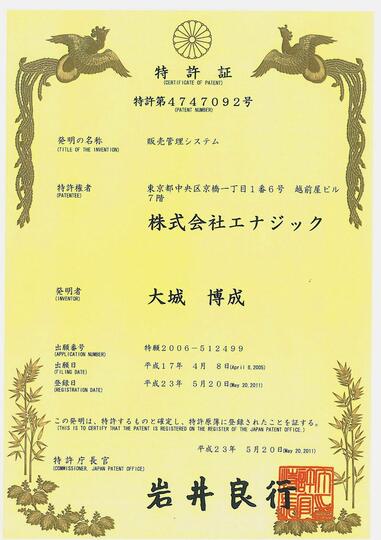 特許証
(CERTIFICATE OF PATENT)
特許第4747092号
(PATENT NUMBER)
発明の名称
(TITLE OF THE INVENTION)
販売管理システム
特許権者
(PATENTEE)
東京都中央区京橋一丁目1番6号 越前屋ビル
7階
株式会社エナジック
発明者
(INVENTOR)
大城 博成
出願番号
(APPLICATION NUMBER)
特願2006-512499
出願日
(FILING DATE)
平成17年 4月 8日(April 8,2005)
登録日
(REGISTRATION DATE)
平成23年 5月20日(May 20,2011)
この発明は、特許するものと確定し、特許原簿に登録されたことを証する。
(THIS IS TO CERTIFY THAT THE PATENT IS REGISTERED ON THE REGISTER OF THE JAPAN PATENT OFFICE.)
平成23年 5月20日(May 20,2011)
特許庁長官
(COMMISSIONER, JAPAN PATENT OFFICE)
岩井良行